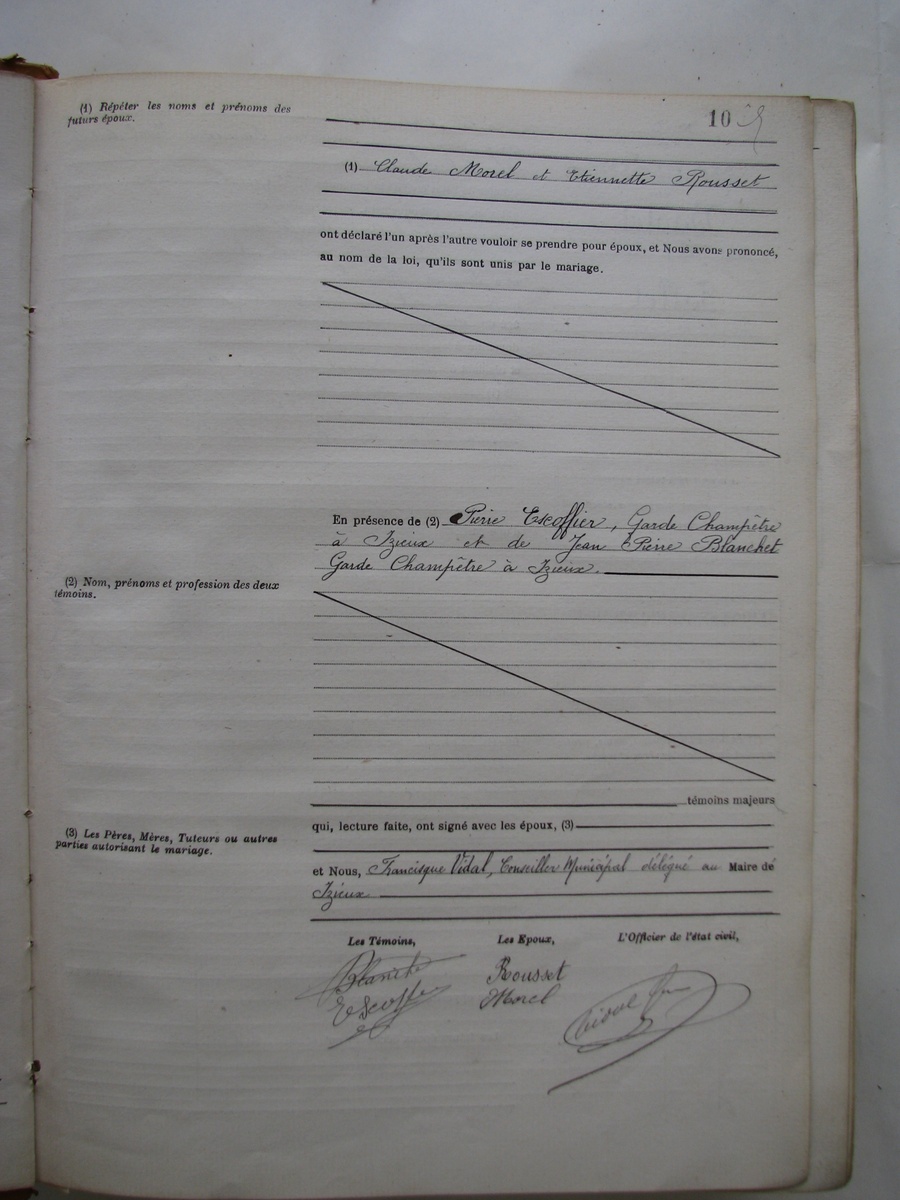 (1) Répéter les noms et prénoms des
futurs époux.
10
(1) Claude Morel et Etiennette Rousset
ont déclaré l'un après l'autre vouloir se prendre pour époux, et Nous avons prononcé,
au nom de la loi, qu'ils sont unis par le mariage.
En présence de (2) Pierre Escoffier, Garde Champêtre
à Izieux et de Jean Pierre Blanchet
Garde Champêtre à Izieux.
(2) Nom, prénoms et profession des deux
témoins.
témoins majeurs
qui, lecture faite, ont signé avec les époux, (3)
(3) Les Pères, Mères, Tuteurs ou autres
parties autorisant le mariage.
et Nous, Francisque Vidal, Conseiller Municipal délégué au Maire de
Izieux
Les Témoins, Les Epoux, L'Officier de l'état civil,
Rousset
Morel